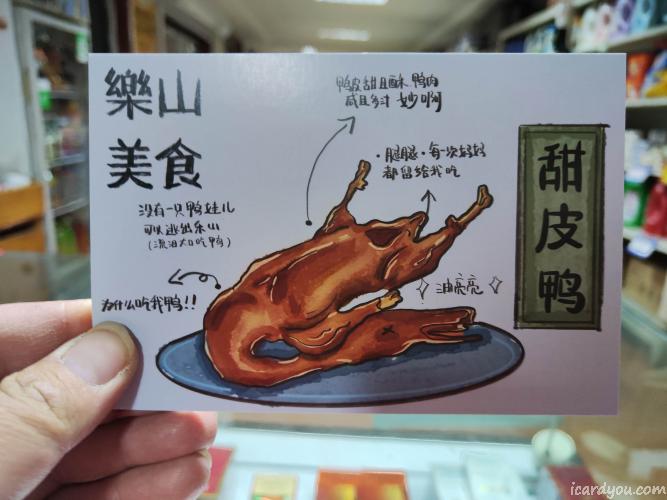 樂山
美食
鸭皮甜且酥 鸭肉
咸且多汁 妙啊
·腿腿·每次妈妈
都留给我吃
没有一只鸭娃儿
可以逃出乐山
(流油大口吃鸭)
为什么吃我鸭!!
油亮亮
甜皮鸭
icardyou.com